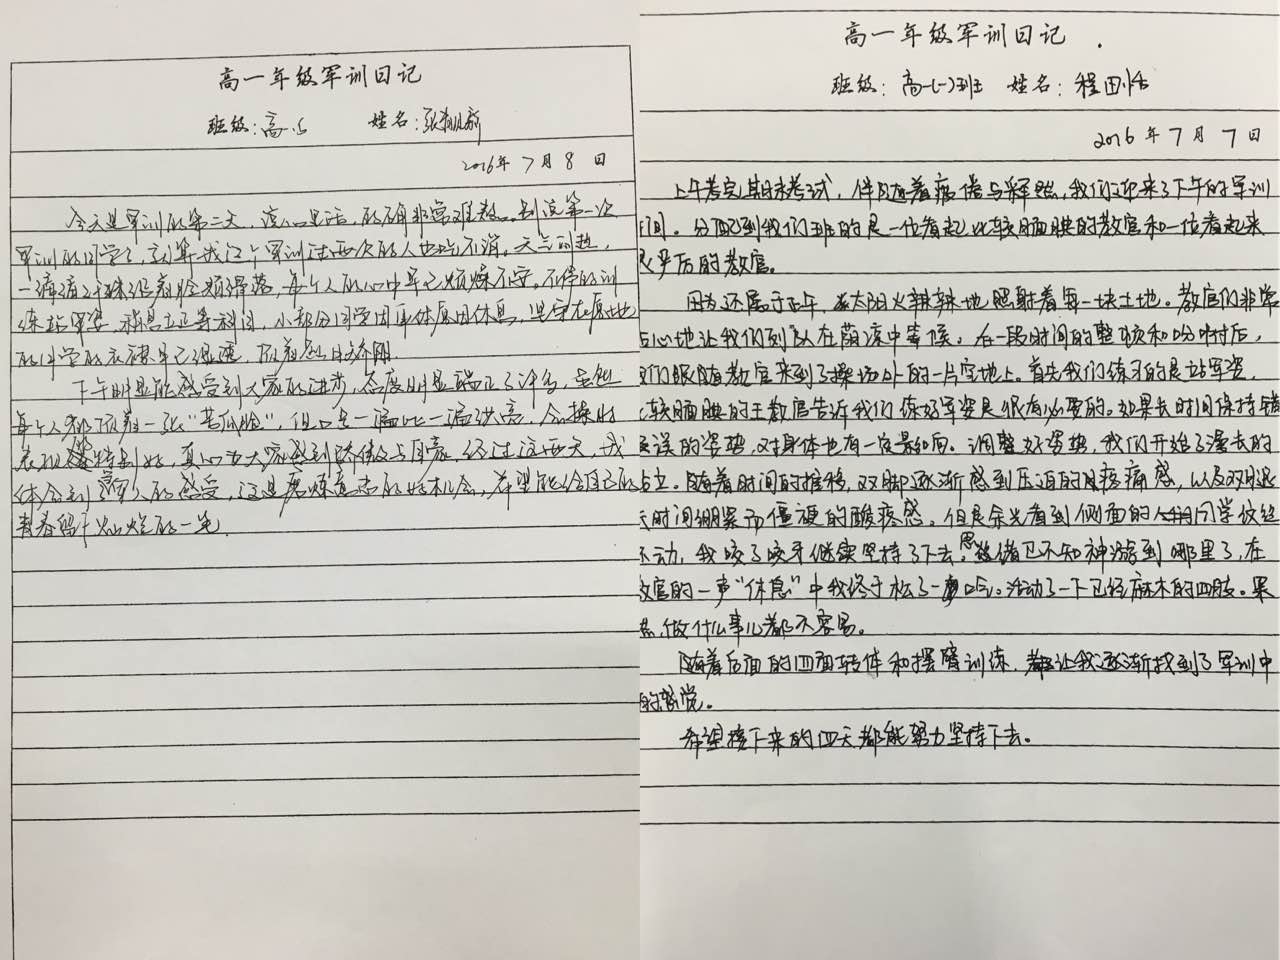 高一年级军训日记
班级:高 姓名:张
2016年7月8日
今天是军训的第二天, 的确非常难熬。别说第一次
军训的同学了,就算我这个军训过两次的人也吃不消。天气闷热,
一滴滴汗珠沿着脸颊滑落,每个人的心中早已烦燥不安。不停的训
练站军姿,稍息立正等科目,小部分同学因身体原因休息,坚守在原地
的同学的衣襟早已湿透,
下午明显能感受到大家的进步,态度明显端正了许多,虽然
每个人都顶着一张“苦瓜脸”,但口号一遍比一遍洪亮,会操时
表现特别好,真心为大家感到骄傲与自豪。经过这两天,我
体会到军人的感受,这是磨炼意志的好机会,希望能给自己的
青春留下灿烂的一笔。
高一年级军训日记
班级:高一(一)班 姓名:程
2016年7月7日
上午考完期末考试,伴随着疲倦与释然,我们迎来了下午的军训
间。分配到我们班的是一位看起比较腼腆的教官和一位看起来
严厉的教官。
因为还属于正午,太阳火辣辣地照射着每一块土地。教官们非常
心地让我们列队在荫凉中等候。在一段时间的整顿和吩咐后,
们跟随教官来到了操场外的一片空地上。首先我们练习的是站军姿,
较腼腆的王教官告诉我们练好军姿是很有必要的。如果长时间保持错
误的姿势,对身体也有一定影响。调整好姿势,我们开始了漫长的
站立。随着时间的推移,双脚逐渐感到压迫的疼痛感,以及双腿
长时间绷紧而僵硬的酸疼感。但是余光看到侧面的同学纹丝
不动,我咬了咬牙继续坚持了下去。思绪已不知神游到哪里了,在
教官的一声“休息”中我终于松了一口气。活动了一下已经麻木的四肢。果
然,做什么事儿都不容易。
随着后面的四面转体和摆臂训练,都让我逐渐找到了军训中
的感觉。
希望接下来的四天都能努力坚持下去。